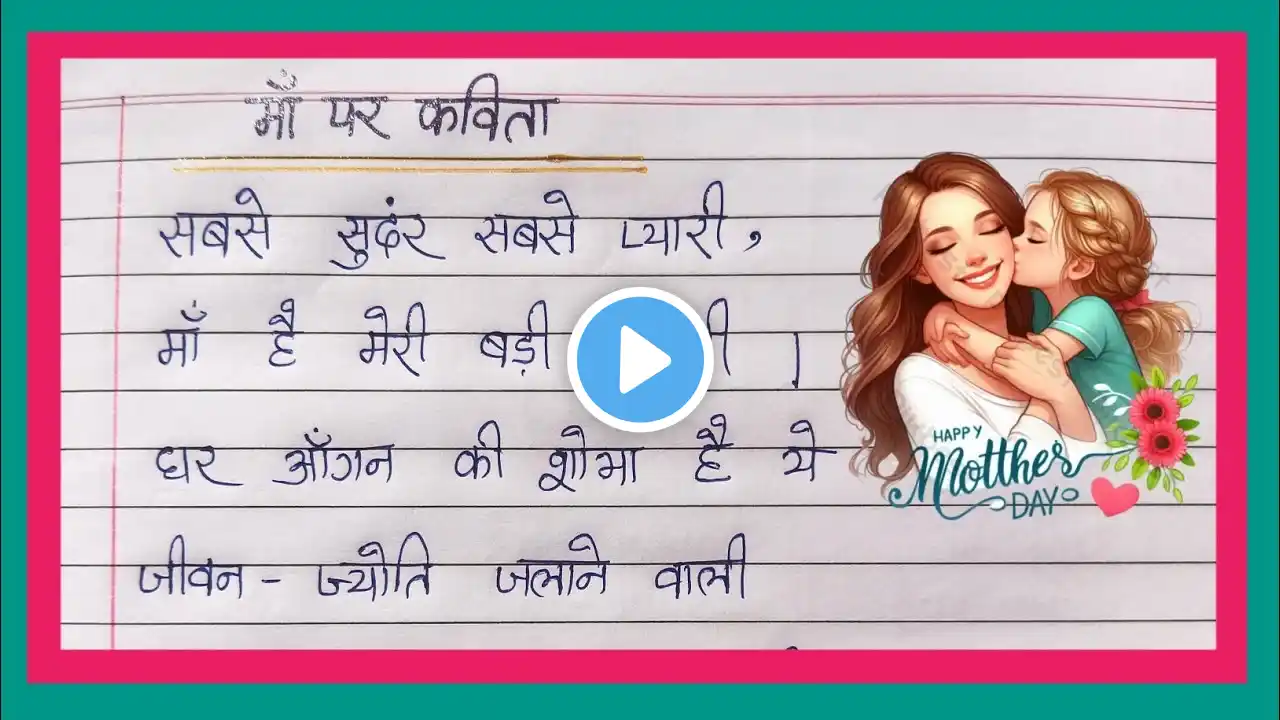 माँ पर कविता
सबसे सुदंर सबसे प्यारी,
माँ है मेरी बड़ी ।
घर आँगन की शोभा है ये
जीवन - ज्योति जलाने वाली
HAPPY
Motther
DAY